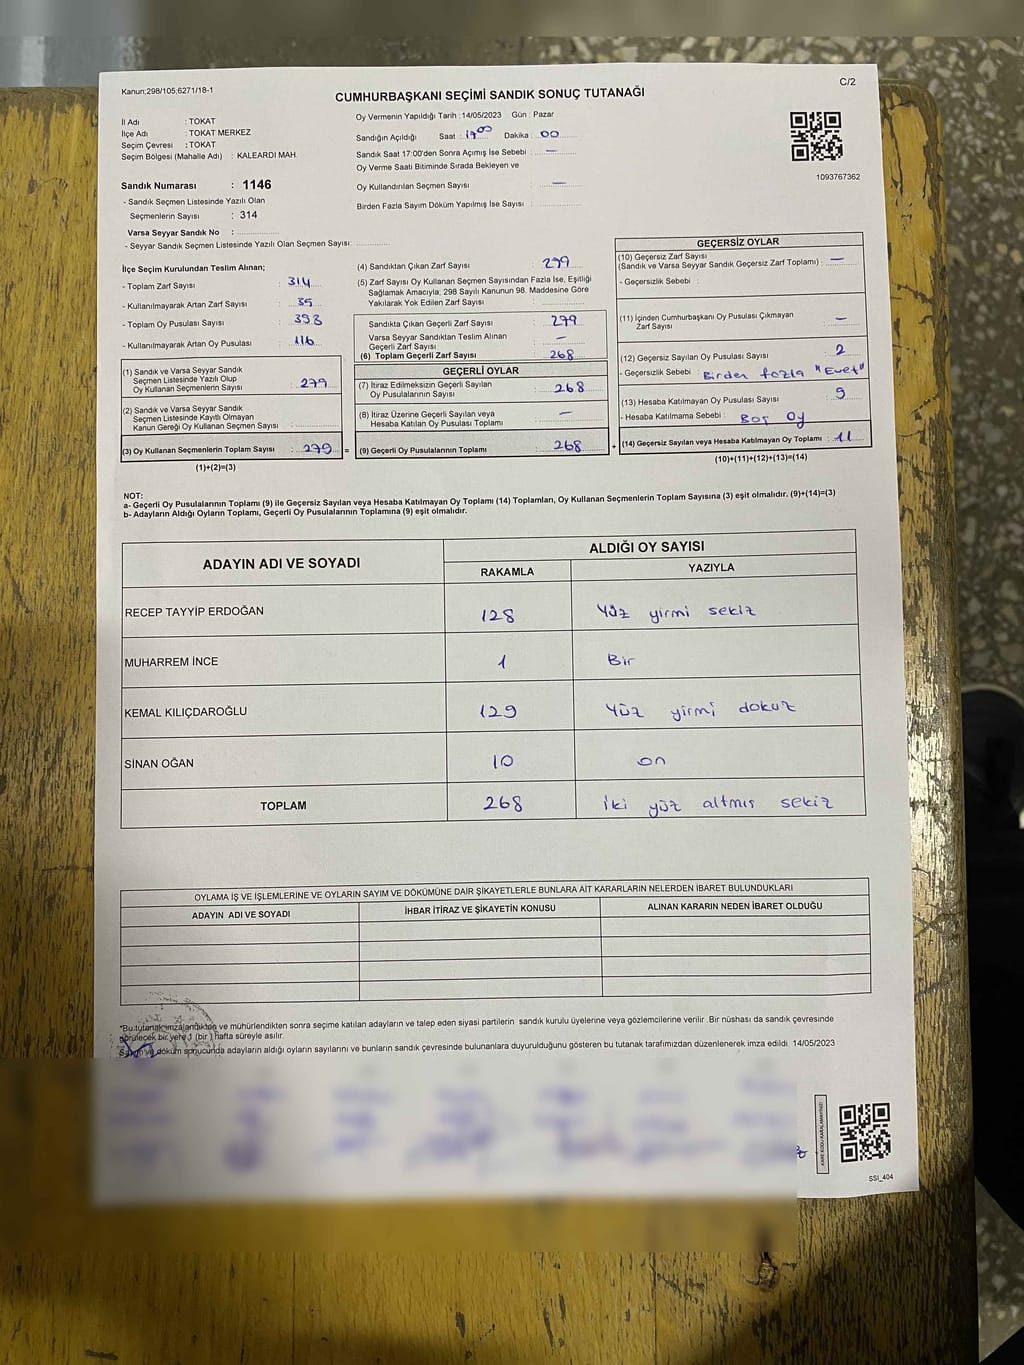 Kanun;298/105;6271/18-1
C/2
CUMHURBAŞKANI SEÇİMİ SANDIK SONUÇ TUTANAĞI
İl Adı : TOKAT
İlçe Adı : TOKAT MERKEZ
Seçim Çevresi : TOKAT
Seçim Bölgesi (Mahalle Adı) : KALEARDI MAH.
Sandık Numarası : 1146
- Sandık Seçmen Listesinde Yazılı Olan
Seçmenlerin Sayısı : 314
Varsa Seyyar Sandık No :
- Seyyar Sandık Seçmen Listesinde Yazılı Olan Seçmen Sayısı:
Oy Vermenin Yapıldığı Tarih : 14/05/2023 Gün : Pazar
Sandığın Açıldığı Saat : 17.00 Dakika : 00
Sandık Saat 17:00'den Sonra Açımış İse Sebebi : —
Oy Verme Saati Bitiminde Sırada Bekleyen ve
Oy Kullandırılan Seçmen Sayısı : —
Birden Fazla Sayım Döküm Yapılmış İse Sayısı :
1093767362
İlçe Seçim Kurulundan Teslim Alınan;
- Toplam Zarf Sayısı : 314
- Kullanılmayarak Artan Zarf Sayısı : 35
- Toplam Oy Pusulası Sayısı : 393
- Kullanılmayarak Artan Oy Pusulası : 116
(1) Sandık ve Varsa Seyyar Sandık
Seçmen Listesinde Yazılı Olup
Oy Kullanan Seçmenlerin Sayısı : 279
(2) Sandık ve Varsa Seyyar Sandık
Seçmen Listesinde Kayıtlı Olmayan
Kanun Gereği Oy Kullanan Seçmen Sayısı :
(3) Oy Kullanan Seçmenlerin Toplam Sayısı : 279 =
(1)+(2)=(3)
(4) Sandıktan Çıkan Zarf Sayısı : 279
(5) Zarf Sayısı Oy Kullanan Seçmen Sayısından Fazla İse, Eşitliği
Sağlamak Amacıyla, 298 Sayılı Kanunun 98. Maddesine Göre
Yakılarak Yok Edilen Zarf Sayısı :
Sandıkta Çıkan Geçerli Zarf Sayısı : 279
Varsa Seyyar Sandıktan Teslim Alınan
Geçerli Zarf Sayısı : —
(6) Toplam Geçerli Zarf Sayısı : 268
GEÇERLİ OYLAR
(7) İtiraz Edilmeksizin Geçerli Sayılan
Oy Pusulasının Sayısı : 268
(8) İtiraz Üzerine Geçerli Sayılan veya
Hesaba Katılan Oy Pusulası Toplamı : —
(9) Geçerli Oy Pusulalarının Toplamı : 268 +
GEÇERSİZ OYLAR
(10) Geçersiz Zarf Sayısı
(Sandık ve Varsa Seyyar Sandık Geçersiz Zarf Toplamı) : —
- Geçersizlik Sebebi :
(11) İçinden Cumhurbaşkanı Oy Pusulası Çıkmayan
Zarf Sayısı : —
(12) Geçersiz Sayılan Oy Pusulası Sayısı : 2
- Geçersizlik Sebebi : Birden fazla "Evet"
(13) Hesaba Katılmayan Oy Pusulası Sayısı : 9
- Hesaba Katılmama Sebebi : Boş Oy
(14) Geçersiz Sayılan veya Hesaba Katılmayan Oy Toplamı : 11
(10)+(11)+(12)+(13)=(14)
NOT:
a- Geçerli Oy Pusulalarının Toplamı (9) ile Geçersiz Sayılan veya Hesaba Katılmayan Oy Toplamı (14) Toplamları, Oy Kullanan Seçmenlerin Toplam Sayısına (3) eşit olmalıdır. (9)+(14)=(3)
b- Adayların Aldığı Oyların Toplamı, Geçerli Oy Pusulalarının Toplamına (9) eşit olmalıdır.
ADAYIN ADI VE SOYADI
ALDIĞI OY SAYISI
RAKAMLA YAZIYLA
RECEP TAYYİP ERDOĞAN 128 Yüz yirmi sekiz
MUHARREM İNCE 1 Bir
KEMAL KILIÇDAROĞLU 129 Yüz yirmi dokuz
SİNAN OĞAN 10 on
TOPLAM 268 iki yüz altmış sekiz
OYLAMA İŞ VE İŞLEMLERİNE VE OYLARIN SAYIM VE DÖKÜMÜNE DAİR ŞİKAYETLERLE BUNLARA AİT KARARLARIN NELERDEN İBARET BULUNDUKLARI
ADAYIN ADI VE SOYADI İHBAR İTİRAZ VE ŞİKAYETİN KONUSU ALINAN KARARIN NEDEN İBARET OLDUĞU
*Bu tutanak imzalandıktan ve mühürlendikten sonra seçime katılan adayların ve talep eden siyasi partilerin sandık kurulu üyelerine veya gözlemcilerine verilir .Bir nüshası da sandık çevresinde
görülecek bir yere 1 (bir ) hafta süreyle asılır.
Sayım ve döküm sonucunda adayların aldığı oyların sayılarını ve bunların sandık çevresinde bulunanlara duyurulduğunu gösteren bu tutanak tarafımızdan düzenlenerek imza edildi. 14/05/2023
KARE KODU KARALAMAYINIZ!
SSI_404